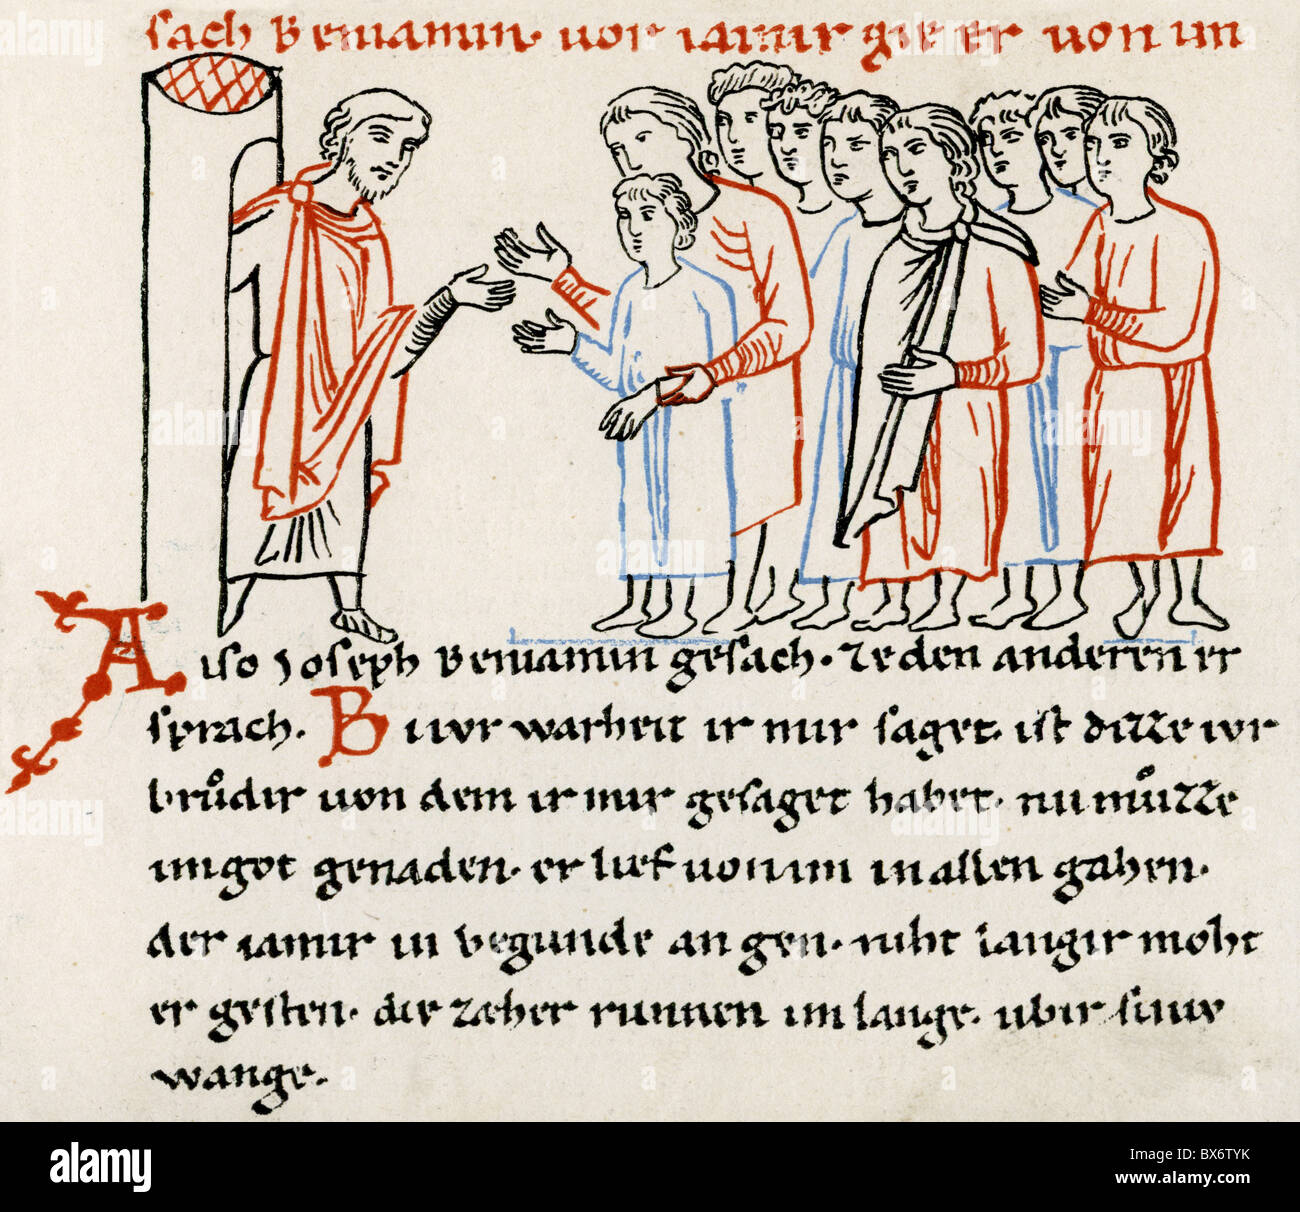 sach Beniamin. vor iamir gie er von im
Also Joseph Beniamin gesach. ze den anderen er
sprach. B iwr warheit ir mir saget. ist dizze iwr
brůdir von dem ir mir gesaget habet. nu můzze
im got genaden. er lief von im in allen gahen.
der iamir in begunde an gen. niht langir moht
er gesten. die zæher runnen im lange. ubir siniv
wange.
alamy
Image ID: BX6TYK
www.alamy.com